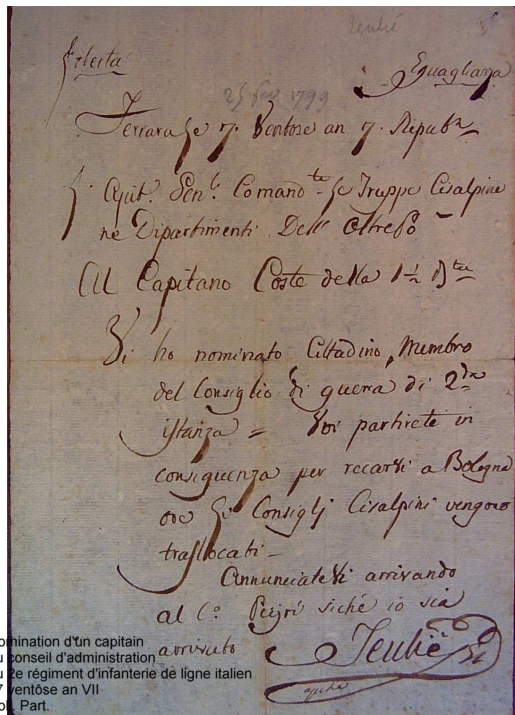 Teulié
Liberta
Eguaglianza
25 feb 1799
Ferrara le 7. Ventose an 7. Repubn
L' Ajut. Genle Comandte le Truppe Cisalpine
ne Dipartimenti Dell' Oltrepò
Al Capitano Coste della 1
Vi ho nominato Cittadino, Membro
del Consiglio di guerra di 2da
istanza = Voi partirete in
conseguenza per recarvi a Bologna
ove li Consiglj Cisalpini vengono
traslocati -
Annunciatevi arrivando
al Co siché io sia
avvisato
Teulié
omination d'un capitain
u conseil d'administration
u 2e régiment d'infanterie de ligne italien
7 ventôse an VII
Part.